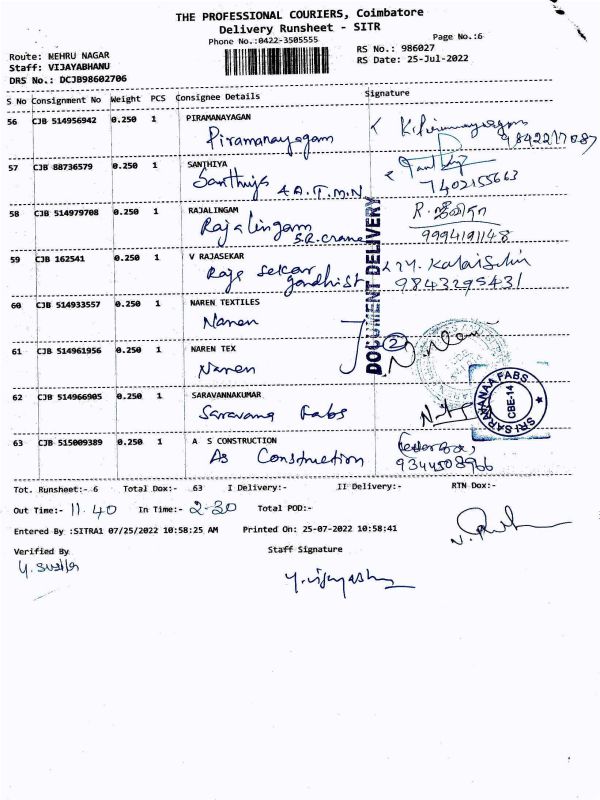 THE PROFESSIONAL COURIERS, Coimbatore
Delivery Runsheet - SITR
Phone No.:0422-3505555
Page No.:6
Route: MEHRU NAGAR
RS No.: 986027
Staff: VIJAYABHANU
RS Date: 25-Jul-2022
DRS No.: DCJB98602706
S No Consignment No Weight PCS Consignee Details Signature
56 CJB 514956942 0.250 1 PIRAMANAYAGAN
Piramanayagam
9842217087
57 CJB 88736579 0.250 1 SANTHIYA
Santhiya 4 A.T.M.N
7402155663
58 CJB 514979708 0.250 1 RAJALINGAM
Rajalingam
S.R. crane
9994191148
59 CJB 162541 0.250 1 V RAJASEKAR
Raje sekar
gandhist
9843295431
DOCUMENT DELIVERY
60 CJB 514933557 0.250 1 NAREN TEXTILES
Naren
2
61 CJB 514961956 0.250 1 NAREN TEX
Naren
62 CJB 514966905 0.250 1 SARAVANNAKUMAR
Saravana Fabs
SRI SARAVANAA FABS
CBE-14
63 CJB 515009389 0.250 1 A S CONSTRUCTION
As Construction
9344508966
Tot. Runsheet:- 6 Total Dox:- 63 I Delivery:- II Delivery:- RTN Dox:-
Out Time:- 11.40 In Time:- 2-30 Total POD:-
Entered By :SITRA1 07/25/2022 10:58:25 AM Printed On: 25-07-2022 10:58:41
Verified By Staff Signature